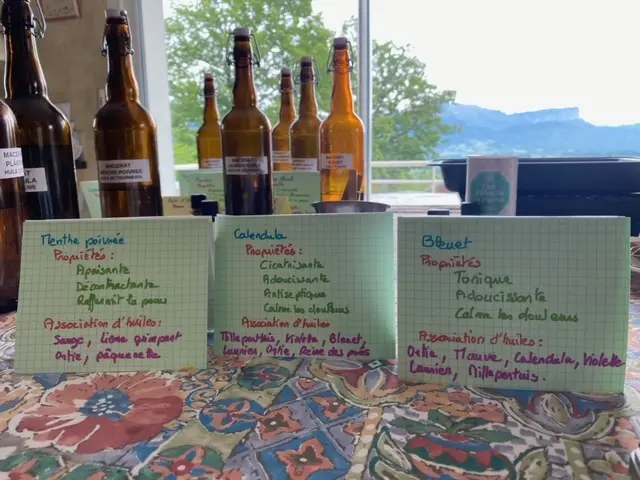 MACERAT
MENTHE POIVREE
MACERAT
Menthe poivrée
Propriétés :
Apaisante
Décontractante
Raffermit la peau
Association d'huiles :
Sauge, Lierre grimpant
Ortie, pâquerette
Calendula
Propriétés :
Cicatrisante
Adoucissante
Antiseptique
Calme les douleurs
Association d'huiles
Millepertuis, Violette, Bleuet,
Laurier, Ortie, Reine des prés
Bleuet
Propriétés
Tonique
Adoucissante
Calme les douleurs
Association d'huiles :
Ortie, Mauve, Calendula, Violette
Laurier, Millepertuis.